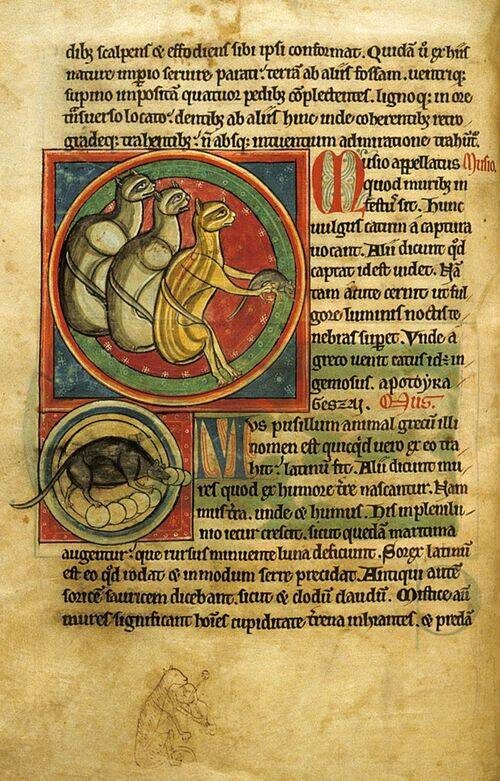 dib; scalpens & effodiens sibi ipsi conformat. Quidā ū ex hiis
nature impio servire parati: terrā ab aliis fossam. ventriq;
supino impositā quatuor pedib; cōplectentes. lignoq; in ore
tͣsuerso locato. dentib; ab aliis hinc inde coherentib; retro
gradeq; trahentib; n̄ absq; intuentium admiratione trahūt͛.
Musio appellatus Musio.
quod murib; in
festuˢ sit. Hunc
vulgus catum a captura
vocant. Alii dicunt qd̓
captat id est videt. Nā
tam acute cernit ut ful
gore luminis noctis te
nebras supet. Unde a
greco venit catus id: in
geniosus.
Mus.
Mus pusillum animal grecū illi
nomen est quicq̓d vero ex eo tra
hit: latinū fit. Alii dicunt mu
res quod ex humore t̄re nascantur. Nam
mus t̄ra. unde & humus. His in plenilu
nio iecur crescit. sicut quedā maritima
augentur: que rursus minuente luna deficiunt. Sorex latinū
est eo q̓d rodat & in modum serre precidat. Antiqui autē
soricē sauricem dicebant. sicut & clodū claudū. Mistice aū
mures significant hoīes cupiditate t̄rena inhiantes. & predā